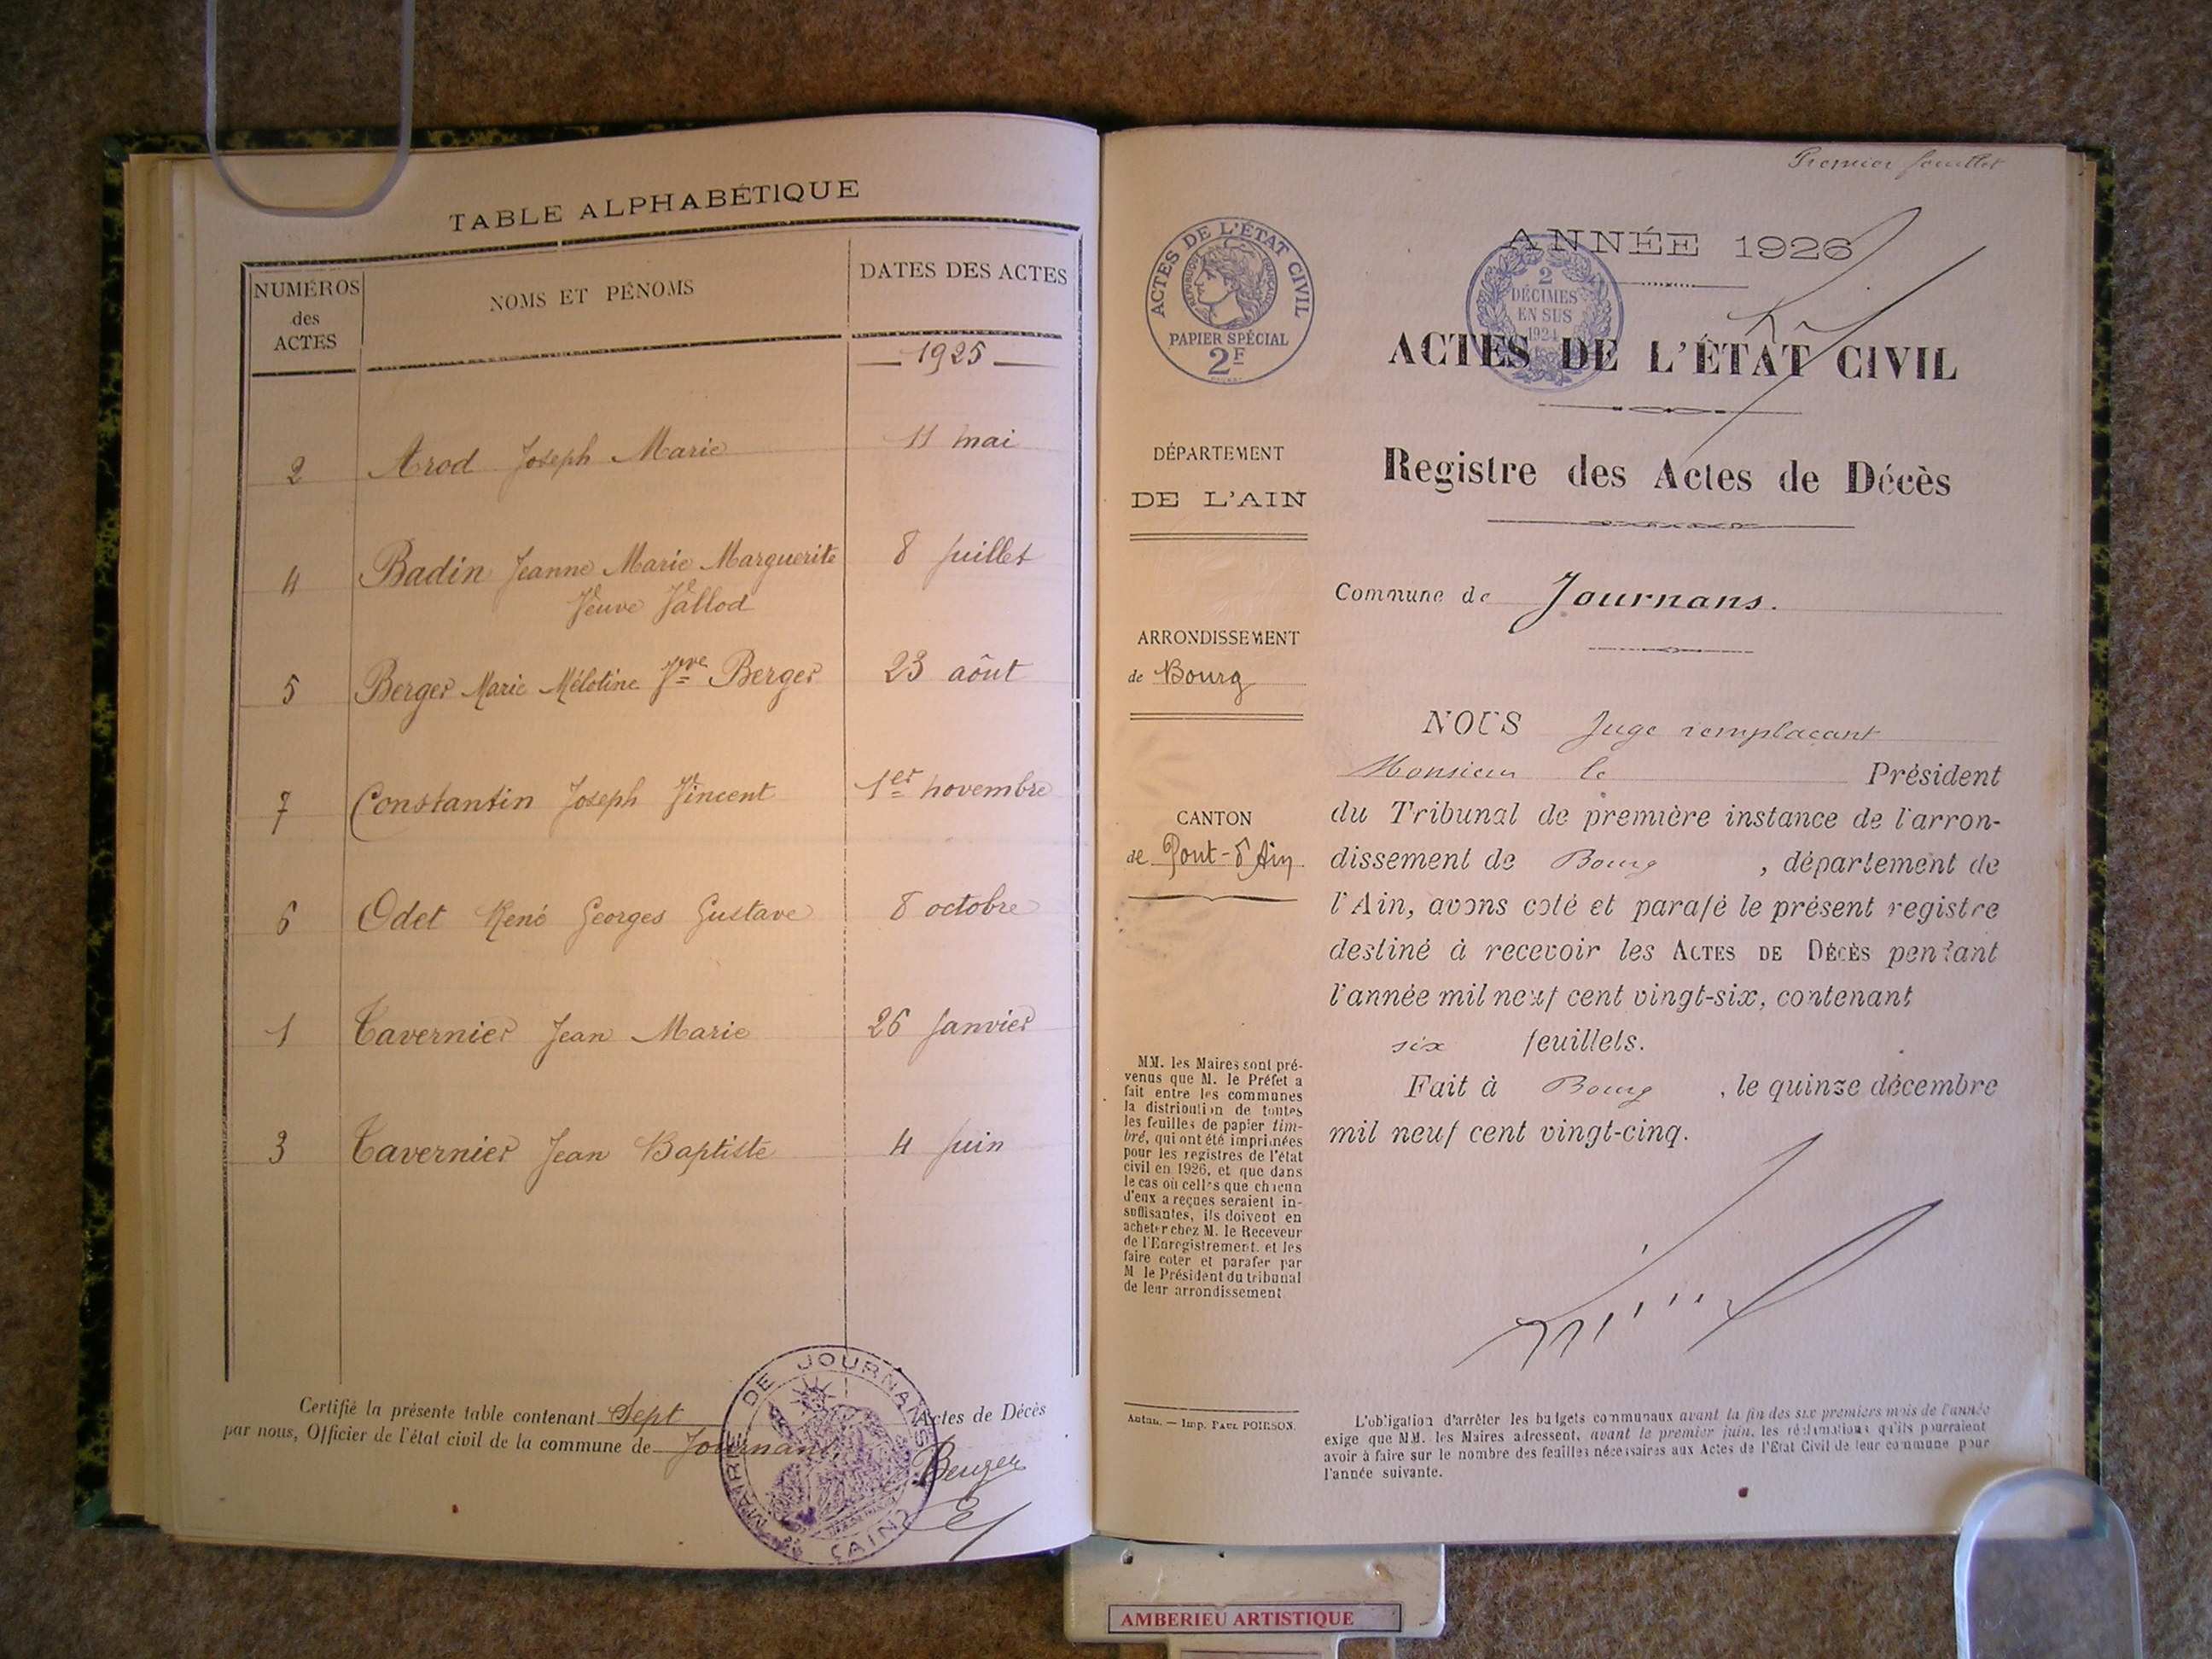 TABLE ALPHABÉTIQUE
NUMÉROS des ACTES
NOMS ET PÉNOMS
DATES DES ACTES
1925
2 Arod Joseph Marie 11 mai
4 Badin Jeanne Marie Marguerite 8 juillet
Veuve Vallod
5 Berger Marie Mélotine Vve Berger 23 aôut
7 Constantin Joseph Vincent 1er novembre
6 Odet René Georges Gustave 8 octobre
1 Tavernier Jean Marie 26 janvier
3 Tavernier Jean Baptiste 4 juin
Certifié la présente table contenant Sept Actes de Décès
par nous, Officier de l'état civil de la commune de Journans
MAIRIE DE JOURNANS
(AIN)
Berger
Premier feuillet
ACTES DE L'ÉTAT CIVIL
RÉPUBLIQUE FRANÇAISE
PAPIER SPÉCIAL
2F
2
DÉCIMES
EN SUS
1924
ANNÉE 1926
ACTES DE L'ÉTAT CIVIL
Registre des Actes de Décès
DÉPARTEMENT
DE L'AIN
ARRONDISSEMENT
de Bourg
CANTON
de Pont-d'Ain
MM. les Maires sont pré-
venus que M. le Préfet a
fait entre les communes
la distribution de toutes
les feuilles de papier tim-
bré, qui ont été imprimées
pour les registres de l'état
civil en 1926, et que dans
le cas où celles que chacun
d'eux a reçues seraient in-
suffisantes, ils doivent en
acheter chez M. le Receveur
de l'Enregistrement. et les
faire coter et parafer par
M le Président du tribunal
de leur arrondissement
Autun. — Imp. PAUL POIRSON.
Commune de Journans.
NOUS Juge remplaçant
Monsieur le Président
du Tribunal de première instance de l'arron-
dissement de Bourg , département de
l'Ain, avons coté et parafé le présent registre
destiné à recevoir les ACTES DE DÉCÈS pendant
l'année mil neuf cent vingt-six, contenant
six feuillets.
Fait à Bourg , le quinze décembre
mil neuf cent vingt-cinq.
L'obligation d'arrêter les budgets communaux avant la fin des six premiers mois de l'année
exige que MM. les Maires adressent, avant le premier juin, les réclamations qu'ils pourraient
avoir à faire sur le nombre des feuilles nécessaires aux Actes de l'Etat Civil de leur commune pour
l'année suivante.
AMBERIEU ARTISTIQUE